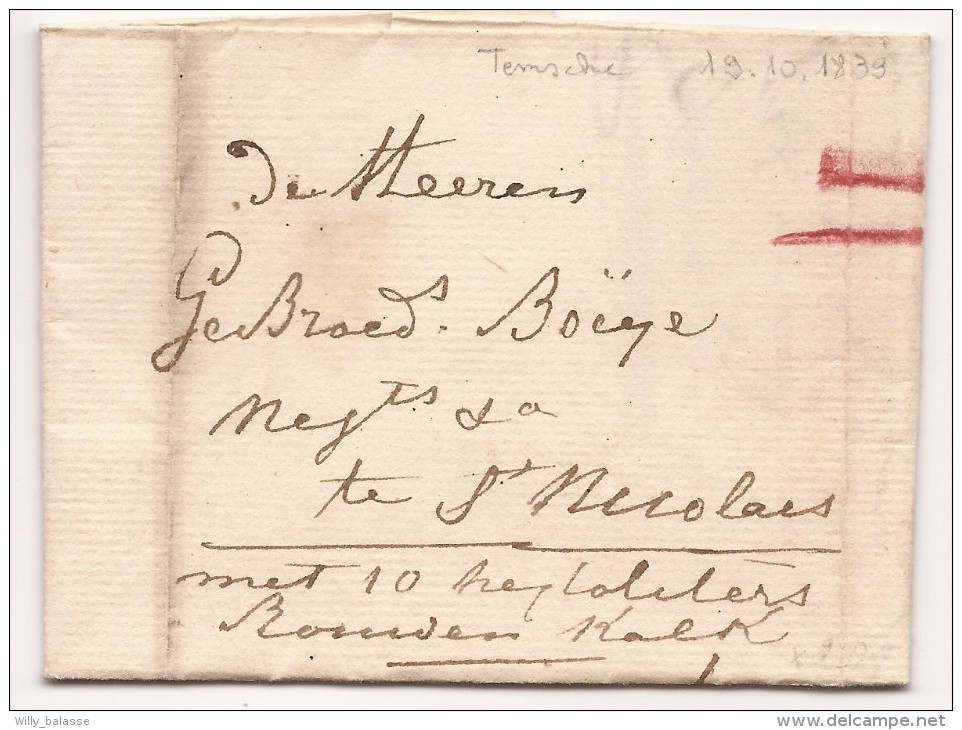 Temsche 19.10.1839
De Heeren
GeBroeds. Boëye
Negts &a
te St Nicolaes
met 10 hectoliters
Kalk
Willy_balasse
www.delcampe.net